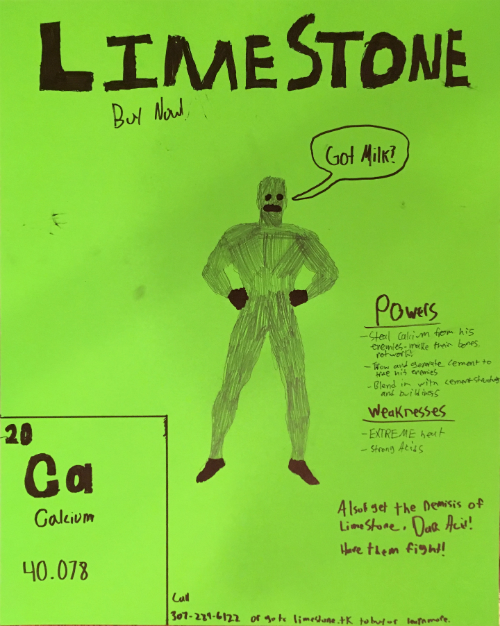 LIMESTONE
Buy Now!
Got Milk?
Powers
- Steal Calcium from his
enemies - make their bones
not work!
- Throw and generate cement to
hit enemies
- Blend in with cement
and buildings
Weaknesses
- EXTREME heat
- Strong Acids
20
Ca
Calcium
40.078
Also get the Nemisis of
Limestone, Dark Acid!
Have them fight!
Call
or go to limestone.tk to learn more.